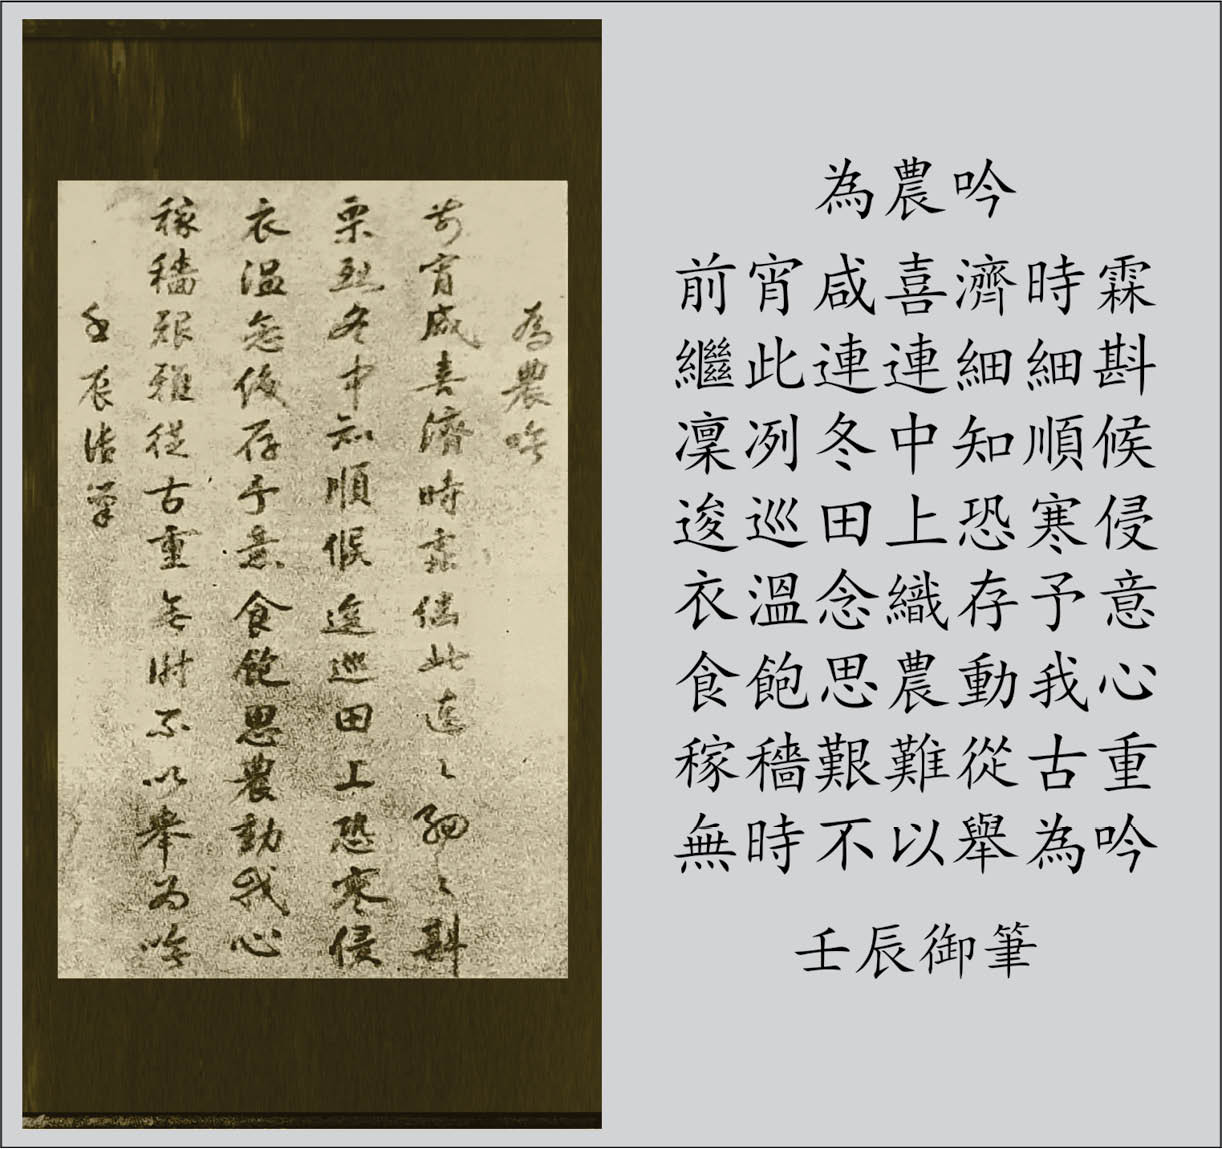 為農吟
前宵咸喜濟時霖繼此連〻細〻斟
栗烈冬中知順候逡巡田上恐寒侵
衣温念織存予意食飽思農動我心
稼穡艱難從古重無時不以舉為吟
壬辰御筆
為農吟
前宵咸喜濟時霖
繼此連連細細斟
凜冽冬中知順候
逡巡田上恐寒侵
衣溫念織存予意
食飽思農動我心
稼穡艱難從古重
無時不以舉為吟
壬辰御筆